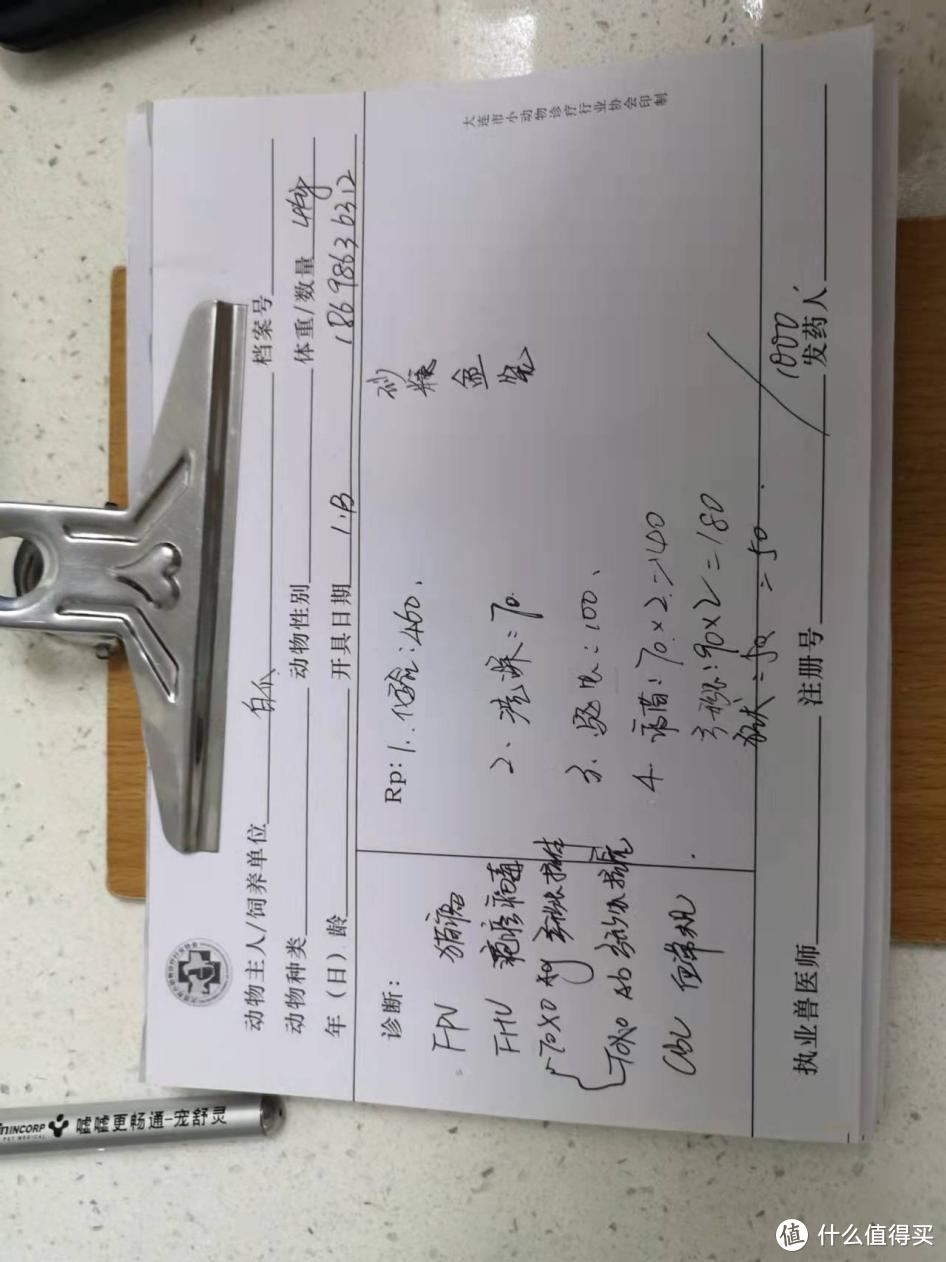 动物主人/饲养单位 白爪 档案号
动物种类 动物性别 体重/数量
年（日）龄 开具日期 1.13 18698636312
诊断：
FPV 猫瘟
FHV 疱疹病毒
TOXO Ag 弓形虫抗
TOXO Ab 弓形虫抗
CBC 血常规
Rp: 1. 化验：460.
2、洗澡：70
3. 驱虫：100、
4. 疫苗：70×2=140
90×2=180
狂犬：50 = 50.
大连市小动物诊疗行业协会印制
1000
执业兽医师 注册号 发药人
MINCORP
PET MEDICAL
嘘嘘更畅通-宠舒灵
值 什么值得买